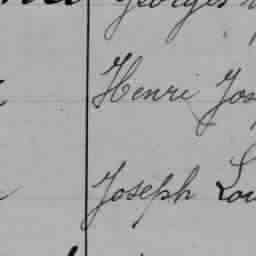 Georges
Henri Jos
Joseph Lou